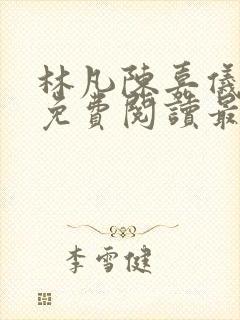 林凡陳嘉儀
免費閱讀最
李雪健